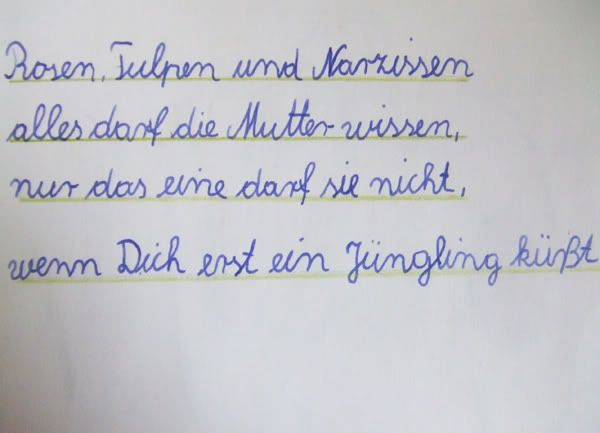 Rosen, Tulpen und Narzissen
alles darf die Mutter wissen,
nur das eine darf sie nicht,
wenn Dich erst ein Jüngling küßt